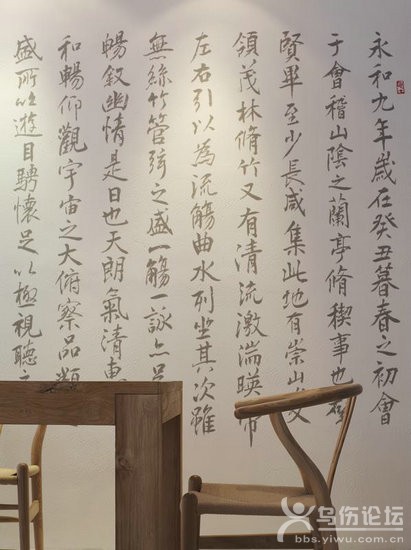 永和九年歲在癸丑暮春之初會
于會稽山陰之蘭亭脩稧事也羣
賢畢至少長咸集此地有崇山峻
領茂林脩竹又有清流激湍暎帶
左右引以為流觴曲水列坐其次雖
無絲竹管弦之盛一觴一詠亦足
暢叙幽情是日也天朗氣清惠
和暢仰觀宇宙之大俯察品類
盛所以遊目騁懷足以極視聽之
乌伤论坛
bbs.yiwu.com